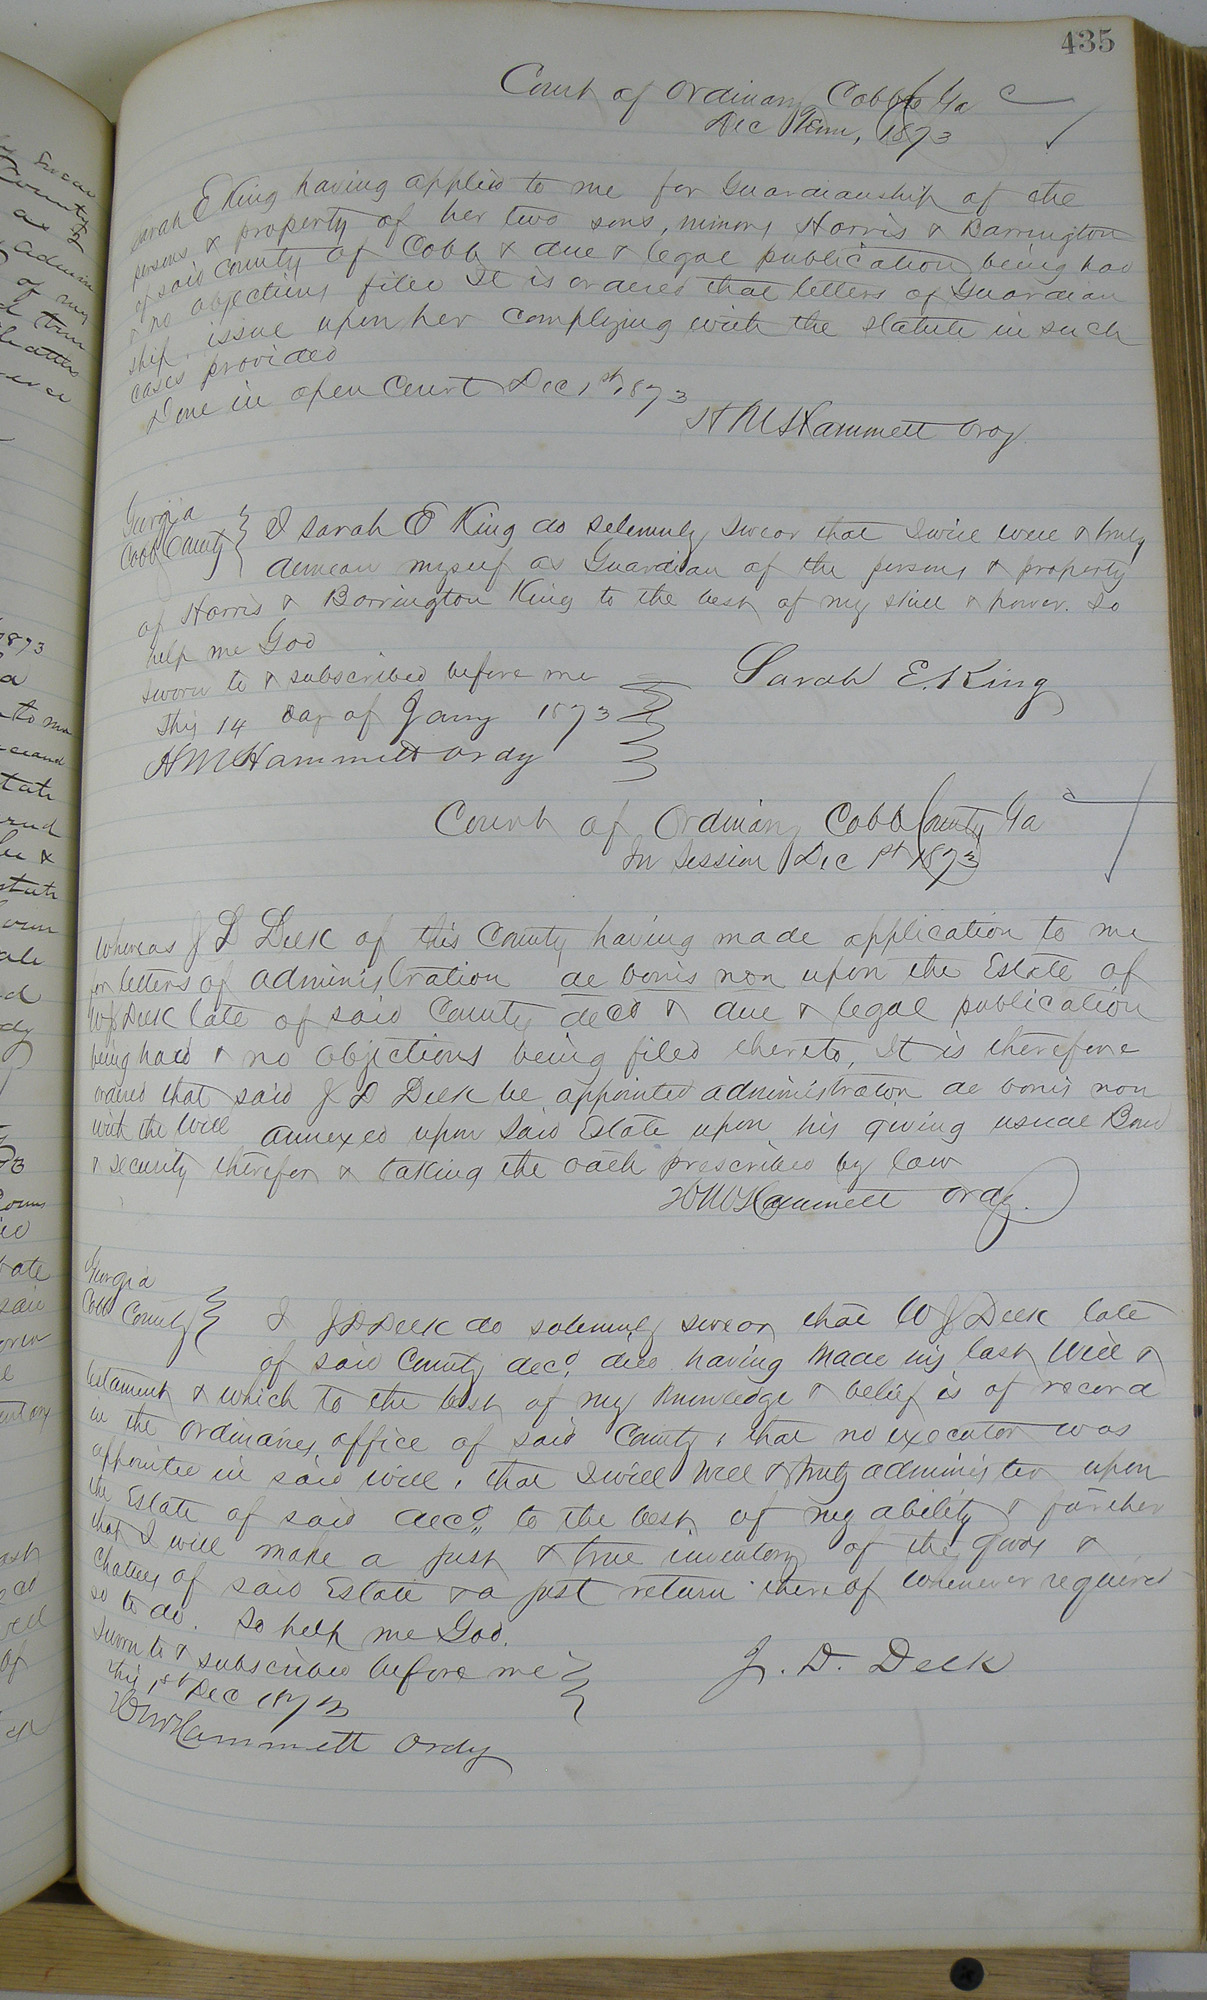 435
Court of Ordinary Cobb Co Ga
Dec Term, 1873
Sarah E King having applied to me for Guardianship of the
persons & property of her two sons, minors Harris & Barrington
of said County of Cobb & due & legal publication being had
& no objections filed It is ordered that letters of Guardian
ship issue upon her complying with the statute in such
cases provided
Done in open Court Dec 1st 1873
H M Hammett Ordy
Georgia
Cobb County } I Sarah E King do solemnly swear that I will well & truly
demean myself as Guardian of the persons & property
of Harris & Barrington King to the best of my skill & power. So
help me God
Sworn to & subscribed before me
This 14 day of Jany 1873
Sarah E. King
H M Hammett Ordy
Court of Ordinary Cobb County Ga
In Session Dec 1st 1873
Whereas J D Delk of this County having made application to me
for letters of administration de bonis non upon the Estate of
W J Delk late of said County decd & due & legal publication
being had & no objections being filed thereto, It is therefore
ordered that said J D Delk be appointed administrator de bonis non
with the Will annexed upon said Estate upon his giving usual Bond
& security therefor & taking the oath prescribed by law
H M Hammett Ordy.
Georgia
Cobb County } I J D Delk do solemnly swear that W J Delk late
of said County decd died having made his last Will &
testament & which to the best of my knowledge & belief is of record
in the ordinaries office of said County, that no executor was
appointed in said will, that I will well & truly administer upon
the Estate of said decd, to the best of my ability & further
that I will make a just & true inventory of the goods &
Chattels of said Estate & a just return thereof whenever required
so to do. So help me God.
Sworn to & subscribed before me
this 1st Dec 1873
J. D. Delk
H M Hammett Ordy